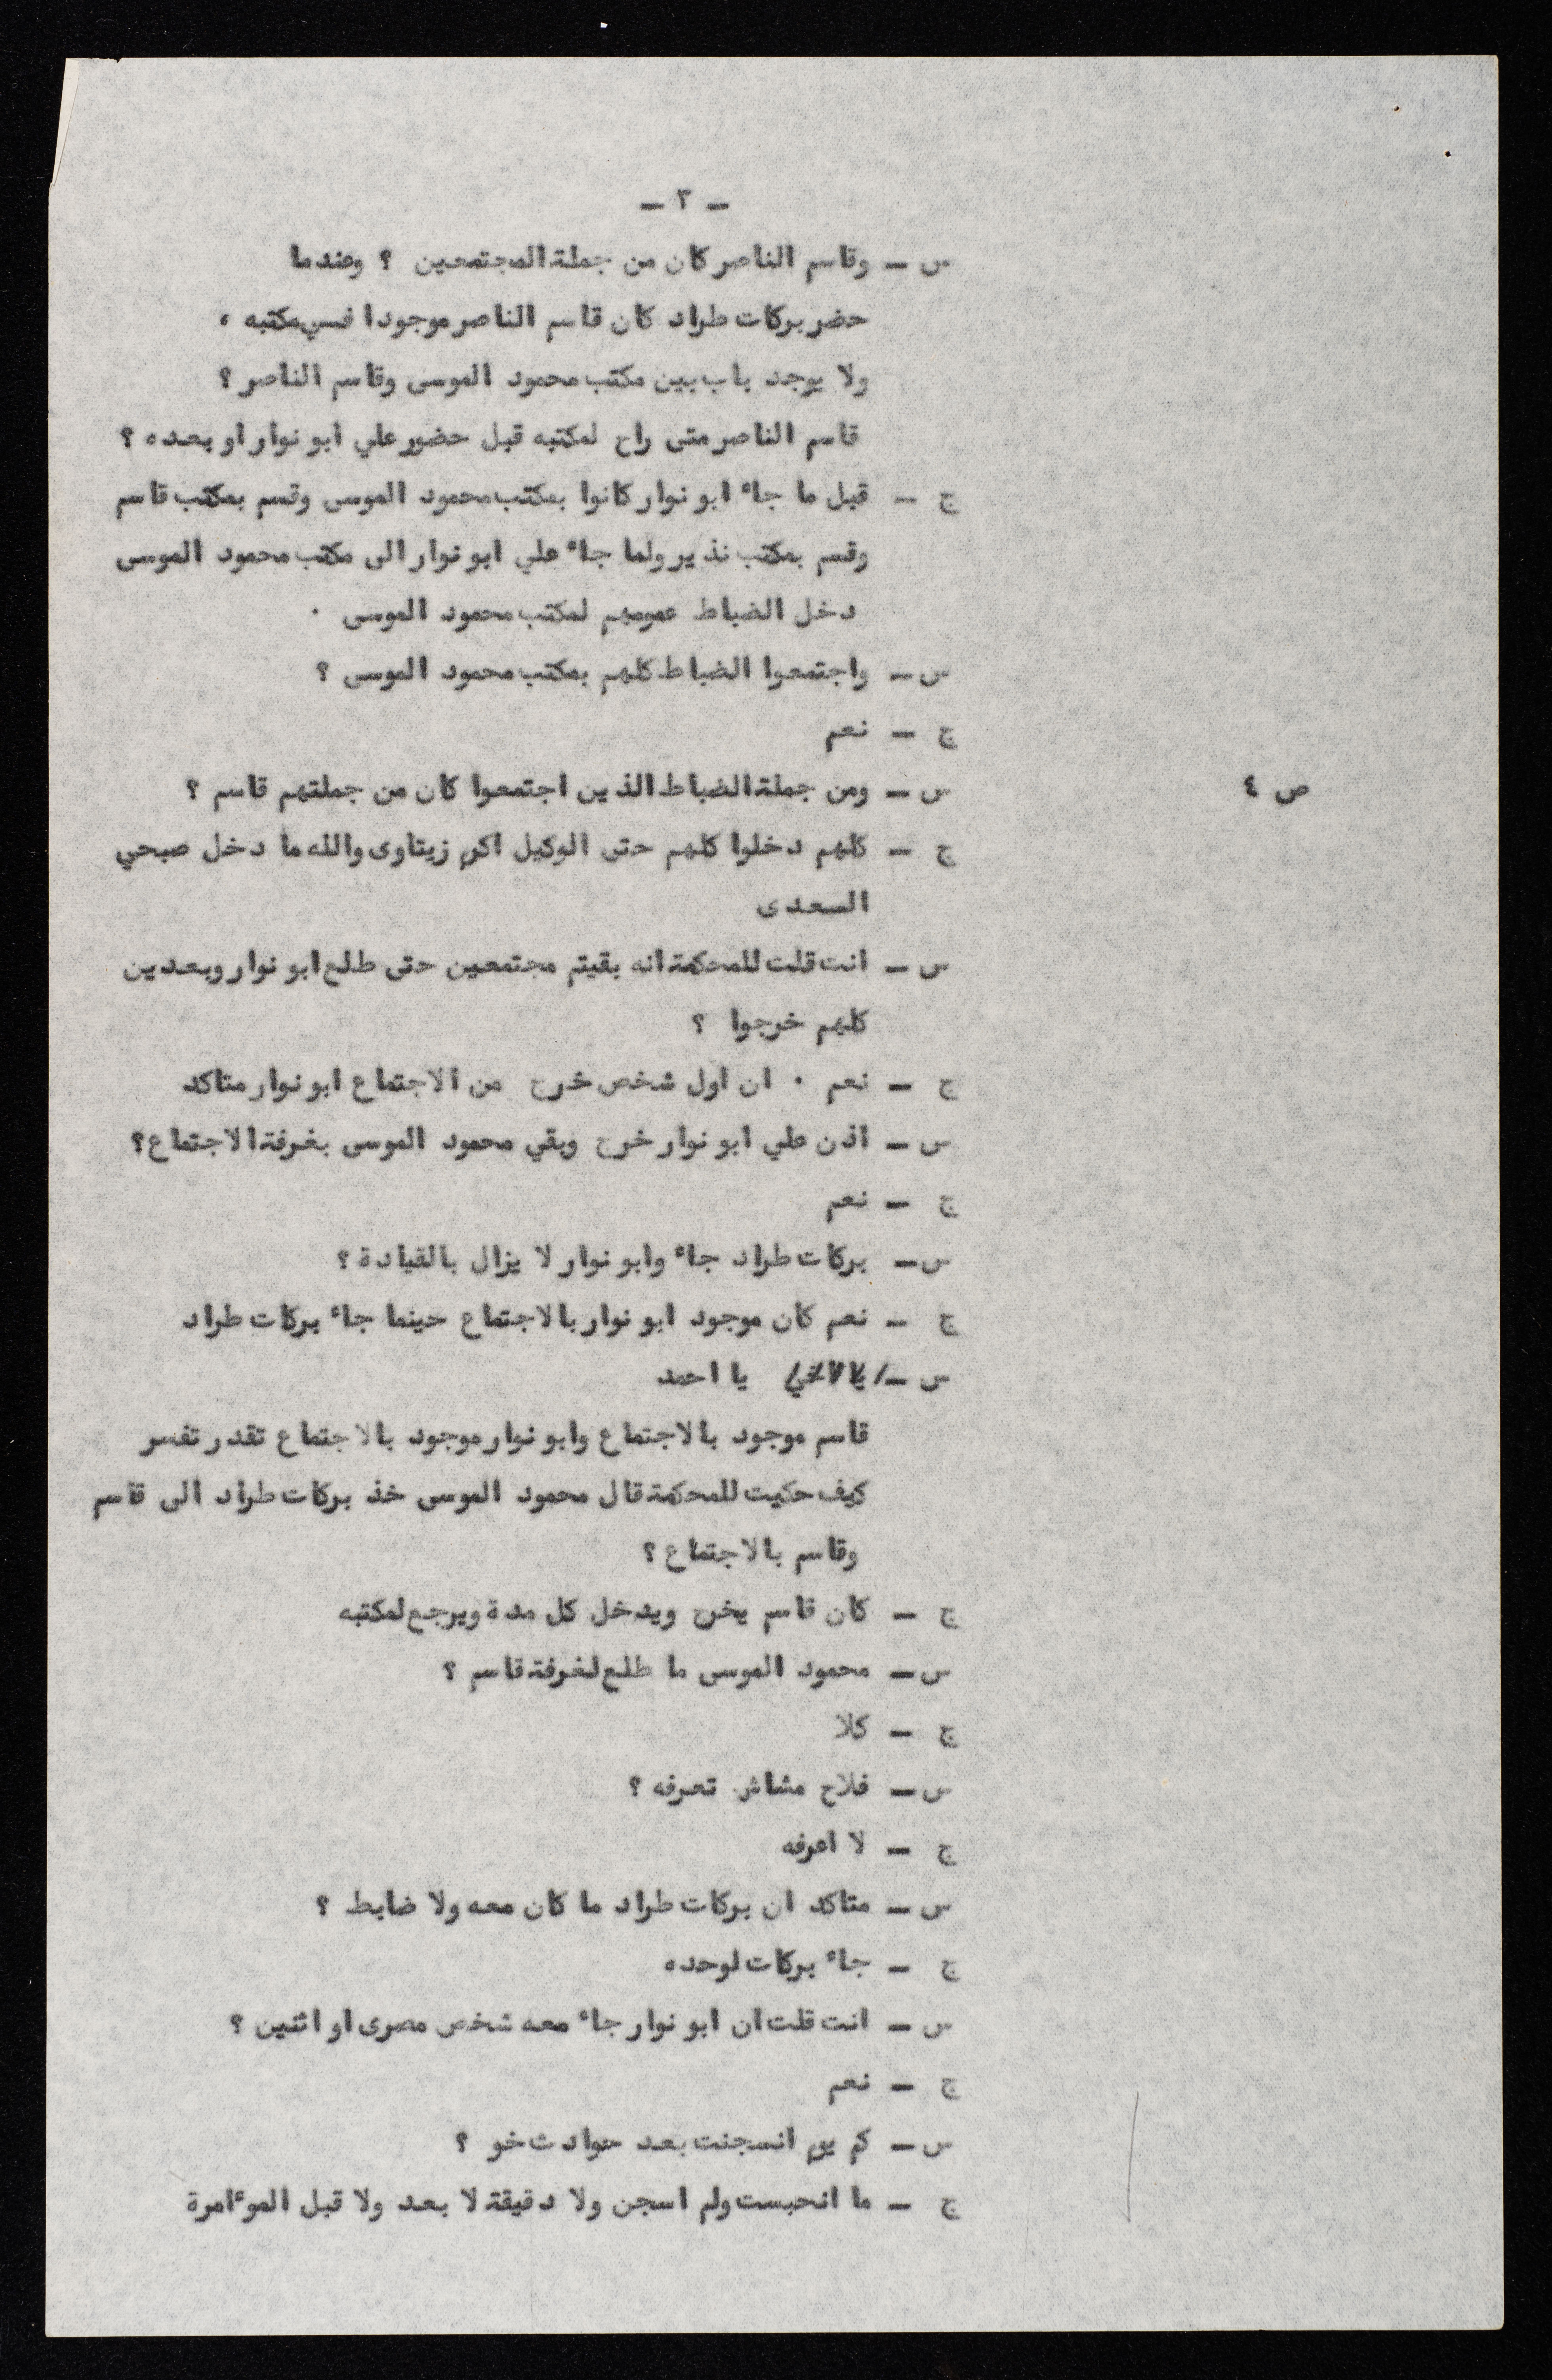 - ٣ -
س - وقاسم الناصر كان من جملة المجتمعين ؟ وعندما
حضر بركات طراد كان قاسم الناصر موجودا فسي مكتبه ،
ولا يوجد باب بين مكتب محمود الموسى وقاسم الناصر ؟
قاسم الناصر متى راح لمكتبه قبل حضور علي ابو نوار او بعده ؟
ج - قبل ما جاء ابو نوار كانوا بمكتب محمود الموسى وقسم بمكتب قاسم
وقسم بمكتب نذير ولما جاء علي ابو نوار الى مكتب محمود الموسى
دخل الضباط عمومهم لمكتب محمود الموسى .
س - واجتمعوا الضباط كلهم بمكتب محمود الموسى ؟
ج - نعم
ص ٤ س - ومن جملة الضباط الذين اجتمعوا كان من جملتهم قاسم ؟
ج - كلهم دخلوا كلهم حتى الوكيل اكرم زيتاوى والله ما دخل صبحي
السعدى
س - انت قلت للمحكمة انه بقيتم مجتمعين حتى طلع ابو نوار وبعدين
كلهم خرجوا ؟
ج - نعم . ان اول شخص خرج من الاجتماع ابو نوار متاكد
س - اذن علي ابو نوار خرج وبقي محمود الموسى بغرفة الاجتماع ؟
ج - نعم
س - بركات طراد جاء وابو نوار لا يزال بالقيادة ؟
ج - نعم كان موجود ابو نوار بالاجتماع حينما جاء بركات طراد
س - يا احمد
قاسم موجود بالاجتماع وابو نوار موجود بالاجتماع تقدر تفسر
كيف حكيت للمحكمة قال محمود الموسى خذ بركات طراد الى قاسم
وقاسم بالاجتماع ؟
ج - كان قاسم يخرج ويدخل كل مدة ويرجع لمكتبه
س - محمود الموسى ما طلع لغرفة قاسم ؟
ج - كلا
س - فلاح مشاش تعرفه ؟
ج - لا اعرفه
س - متاكد ان بركات طراد ما كان معه ولا ضابط ؟
ج - جاء بركات لوحده
س - انت قلت ان ابو نوار جاء معه شخص مصرى او اثنين ؟
ج - نعم
س - كم يوم انسجنت بعد حوادث خو ؟
ج - ما انحبست ولم اسجن ولا دقيقة لا بعد ولا قبل الموءامرة